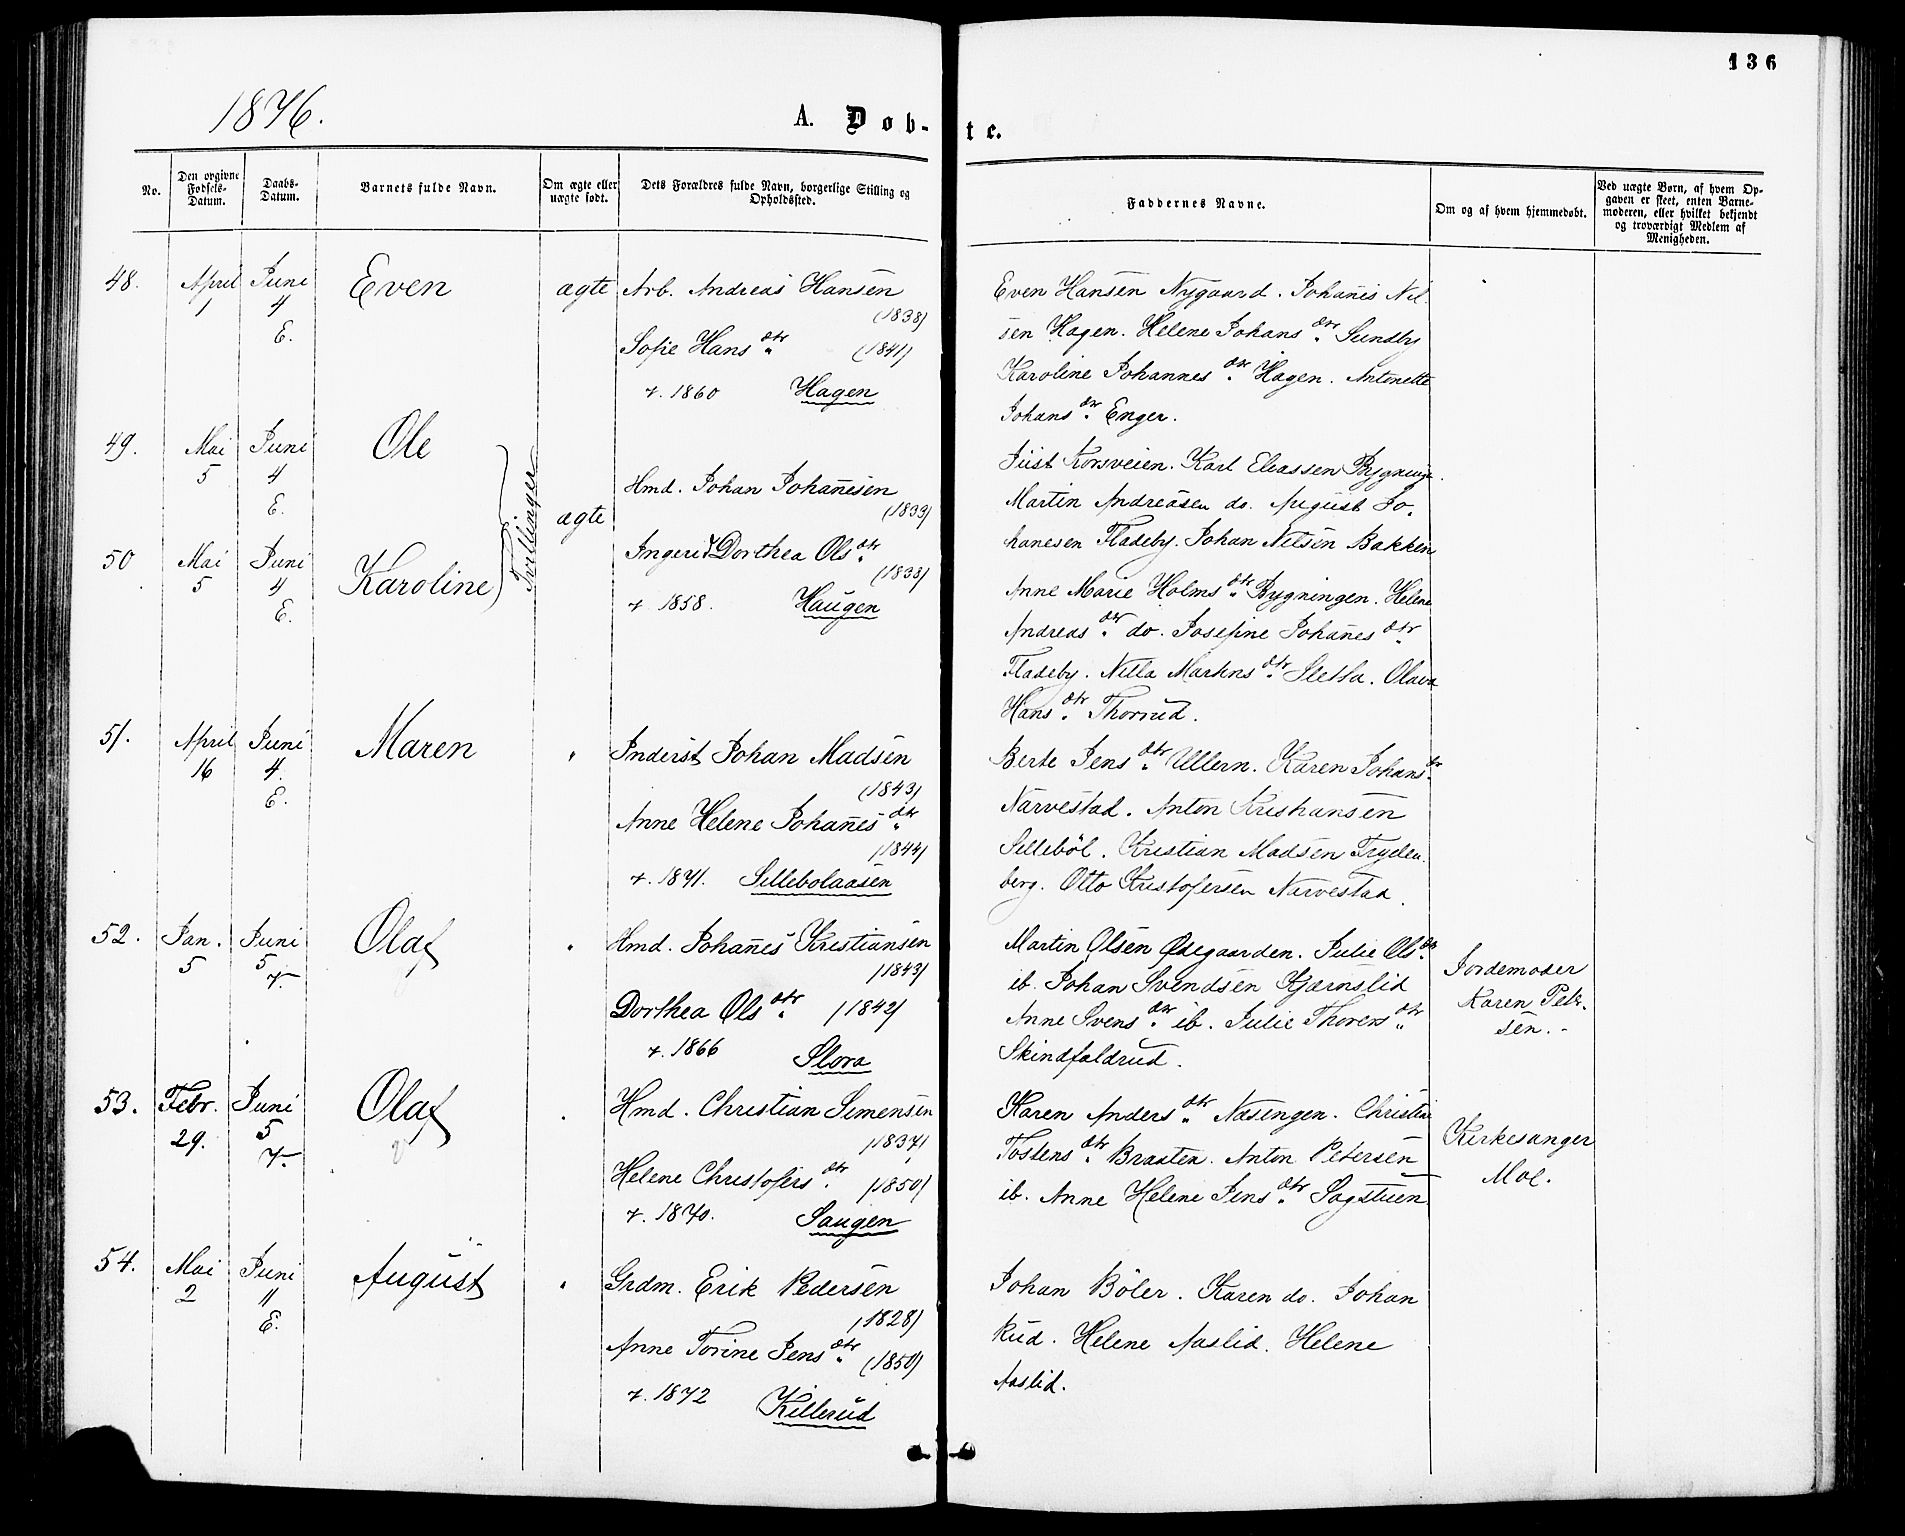 136
1876.
A. Døb-
te.
No.
Den opgivne Fødsels-Datum.
Daabs-Datum.
Barnets fulde Navn.
Om ægte eller uægte født.
Dets Forældres fulde Navn, borgerlige Stilling og Opholdssted.
Faddernes Navne.
Om og af hvem hjemmedøbt.
Ved uægte Børn, af hvem Op-
gaven er skeet, enten Barne-
moderen, eller hvilket bekjendt
og troværdigt Medlem af
Menigheden.
48. April 1 Juni 4 E. Even ægte
Arb. Andreas Hansen
(1838)
Sofie Hans dtr (1841)
v. 1860 Hagen
Even Hansen Nygaard. Johanes Nil
sen Hagen. Helene Johans dtr Sundby
Karoline Johannes dtr Hagen. Antonette
Johans dtr Enger.
49. Mai 5 Juni 4 E. Ole
50 Mai 5 Juni 4 E. Karoline
Tvillinger
ægte
Hmd. Johan Johanesen
(1833)
Ingerid Dorthea Ols dtr
(1833)
v. 1858. Haugen
Just Korsveien. Karl Eliassen Bygninge.
Martin Andreasen do. August Jo-
hanesen Fladeby. Johan Nilsen Bakken
Anne Marie Holms dtr Bygningen. Helene
Andreas dtr do. Josefine Johanes dtr
Fladeby. Nilla Martins dtr Sletta. Olava
Hans dtr Thorrud.
51. April 16 Juni 4. E. Maren "
Inderst Johan Madsen
(1843)
Anne Helene Johanes dtr
(1844)
v. 1871. Sillebolaasen
Berte Jens dtr Ullern. Karen Johans dtr
Narvestad. Anton Kristiansen
Sillebøl. Kristian Madsen Tryden
berg. Otto Kristofersen Narvestad.
52. Jan. 5 Juni 5 V. Olaf "
Hmd. Johanes Kristiansen
(1843)
Dorthea Ols dtr (1842)
v. 1866 Slora
Martin Olsen Ødegaarden. Julie Ols dtr
ib. Johan Svendsen Kjærnslid
Anne Svens dtr ib. Julie Thorers dtr
Skindfaldrud.
Jordemoder
Karen Peter-
sen.
53. Febr. 29. Juni 5 V. Olaf "
Hmd. Christian Simensen
(1837)
Helene Christofers dtr (1850)
v. 1870. Haugen
Karen Anders dtr Næsengen. Christin
Tostens dtr Braaten. Anton Petersen
ib. Anne Helene Jens dtr Sagstuen
Kirkesanger
Moe.
54. Mai 2 Juni 11 E. August "
Grdm. Erik Pedersen
(1828)
Anne Torine Jens dtr (1850)
v. 1872 Killerud
Johan Bøler. Karen do. Johan
Rud. Helene Aaslid. Helene
Aaslid.